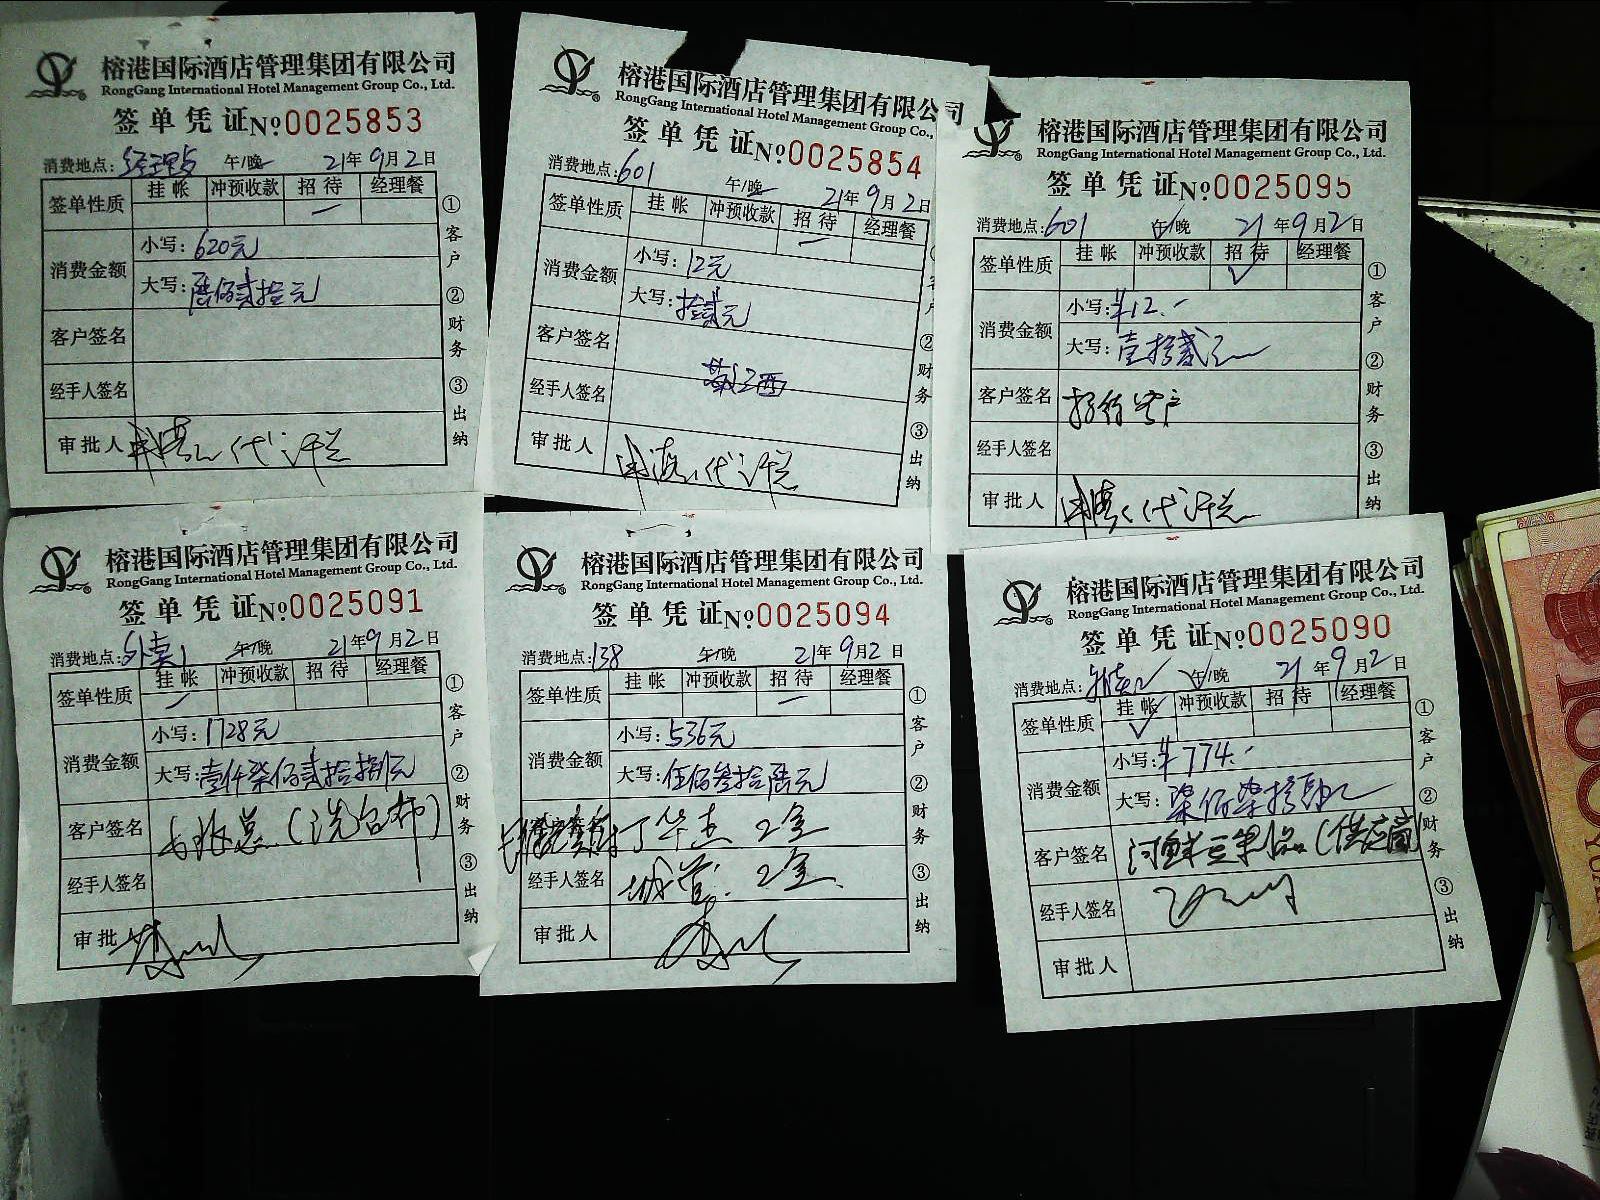 榕港国际酒店管理集团有限公司
RongGang International Hotel Management Group Co., Ltd.
签单凭证№0025853
消费地点: 午/晚 21年9月2日
签单性质 挂帐 冲预收款 招待 经理餐
消费金额 小写:620元
大写:陆佰贰拾元
客户签名
经手人签名
审批人
①客户 ②财务 ③出纳
榕港国际酒店管理集团有限公司
RongGang International Hotel Management Group Co.,
签单凭证№0025854
消费地点:601 午/晚 21年9月2日
签单性质 挂帐 冲预收款 招待 经理餐
消费金额 小写:12元
大写:拾贰元
客户签名
经手人签名
审批人
客户 ②财务 ③出纳
榕港国际酒店管理集团有限公司
RongGang International Hotel Management Group Co., Ltd.
签单凭证№0025095
消费地点:601 午/晚 21年9月2日
签单性质 挂帐 冲预收款 招待 经理餐
消费金额 小写:¥12.-
大写:壹拾贰元
客户签名 招待客户
经手人签名
审批人
①客户 ②财务 ③出纳
榕港国际酒店管理集团有限公司
RongGang International Hotel Management Group Co., Ltd.
签单凭证№0025091
消费地点:外卖1 午/晚 21年9月2日
签单性质 挂帐 冲预收款 招待 经理餐
消费金额 小写:1728元
大写:壹仟柒佰贰拾捌元
客户签名 (洗台布)
经手人签名
审批人
①客户 ②财务 ③出纳
榕港国际酒店管理集团有限公司
RongGang International Hotel Management Group Co., Ltd.
签单凭证№0025094
消费地点:138 午/晚 21年9月2日
签单性质 挂帐 冲预收款 招待 经理餐
消费金额 小写:536元
大写:伍佰叁拾陆元
客户签名
经手人签名 城管
审批人
①客户 ②财务 ③出纳
榕港国际酒店管理集团有限公司
RongGang International Hotel Management Group Co., Ltd.
签单凭证№0025090
消费地点:外卖2 午/晚 21年9月2日
签单性质 挂帐 冲预收款 招待 经理餐
消费金额 小写:¥774.-
大写:柒佰柒拾肆元
客户签名 河鲜豆果品(供应商)
经手人签名
审批人
①客户 ②财务 ③出纳
100
YUAN